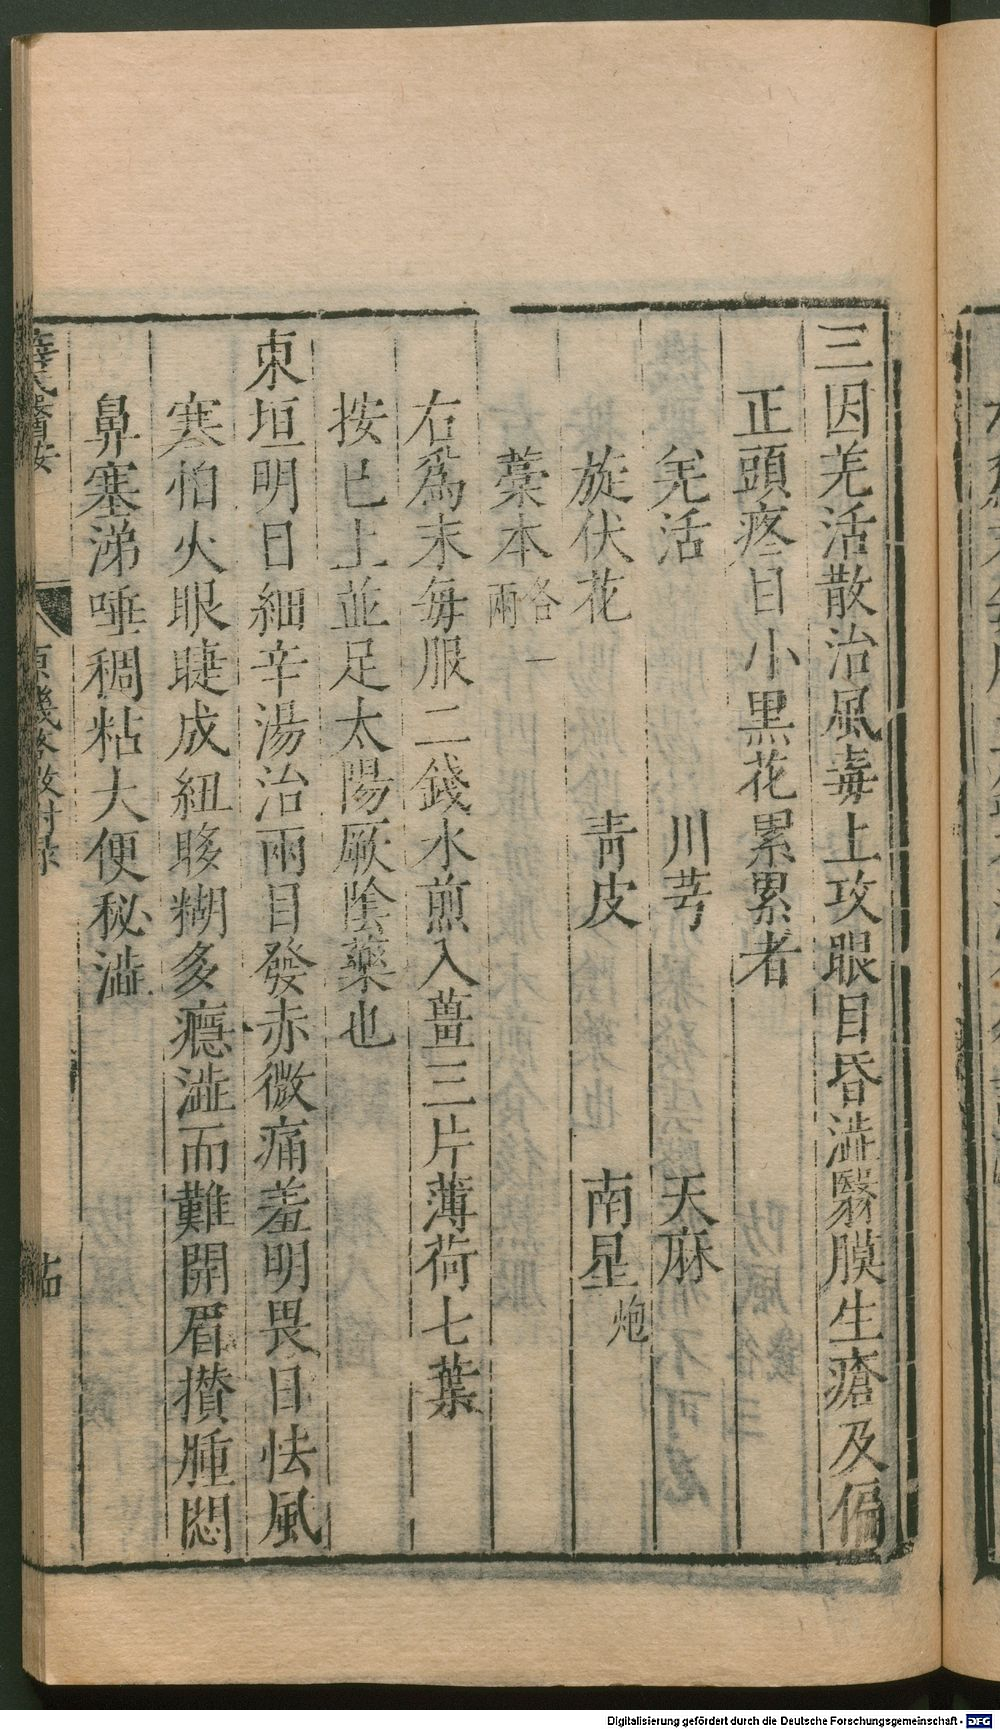 三因羌活散治風毒上攻眼目昏澁翳膜生瘡及偏
正頭疼目小黑花累累者
羌活 川芎 天麻
旋伏花 青皮 南星炮
藁本各一兩
右爲末每服二錢水煎入薑三片薄荷七葉
按已上並足太陽厥陰藥也
東垣明目細辛湯治兩目發赤微痛羞明畏日怯風
寒怕火眼睫成紐眵糊多癮澁而難開眉攢腫悶
鼻塞涕唾稠粘大便秘澁
薛氏醫按
原機啓微附錄
Digitalisierung gefördert durch die Deutsche Forschungsgemeinschaft - DFG